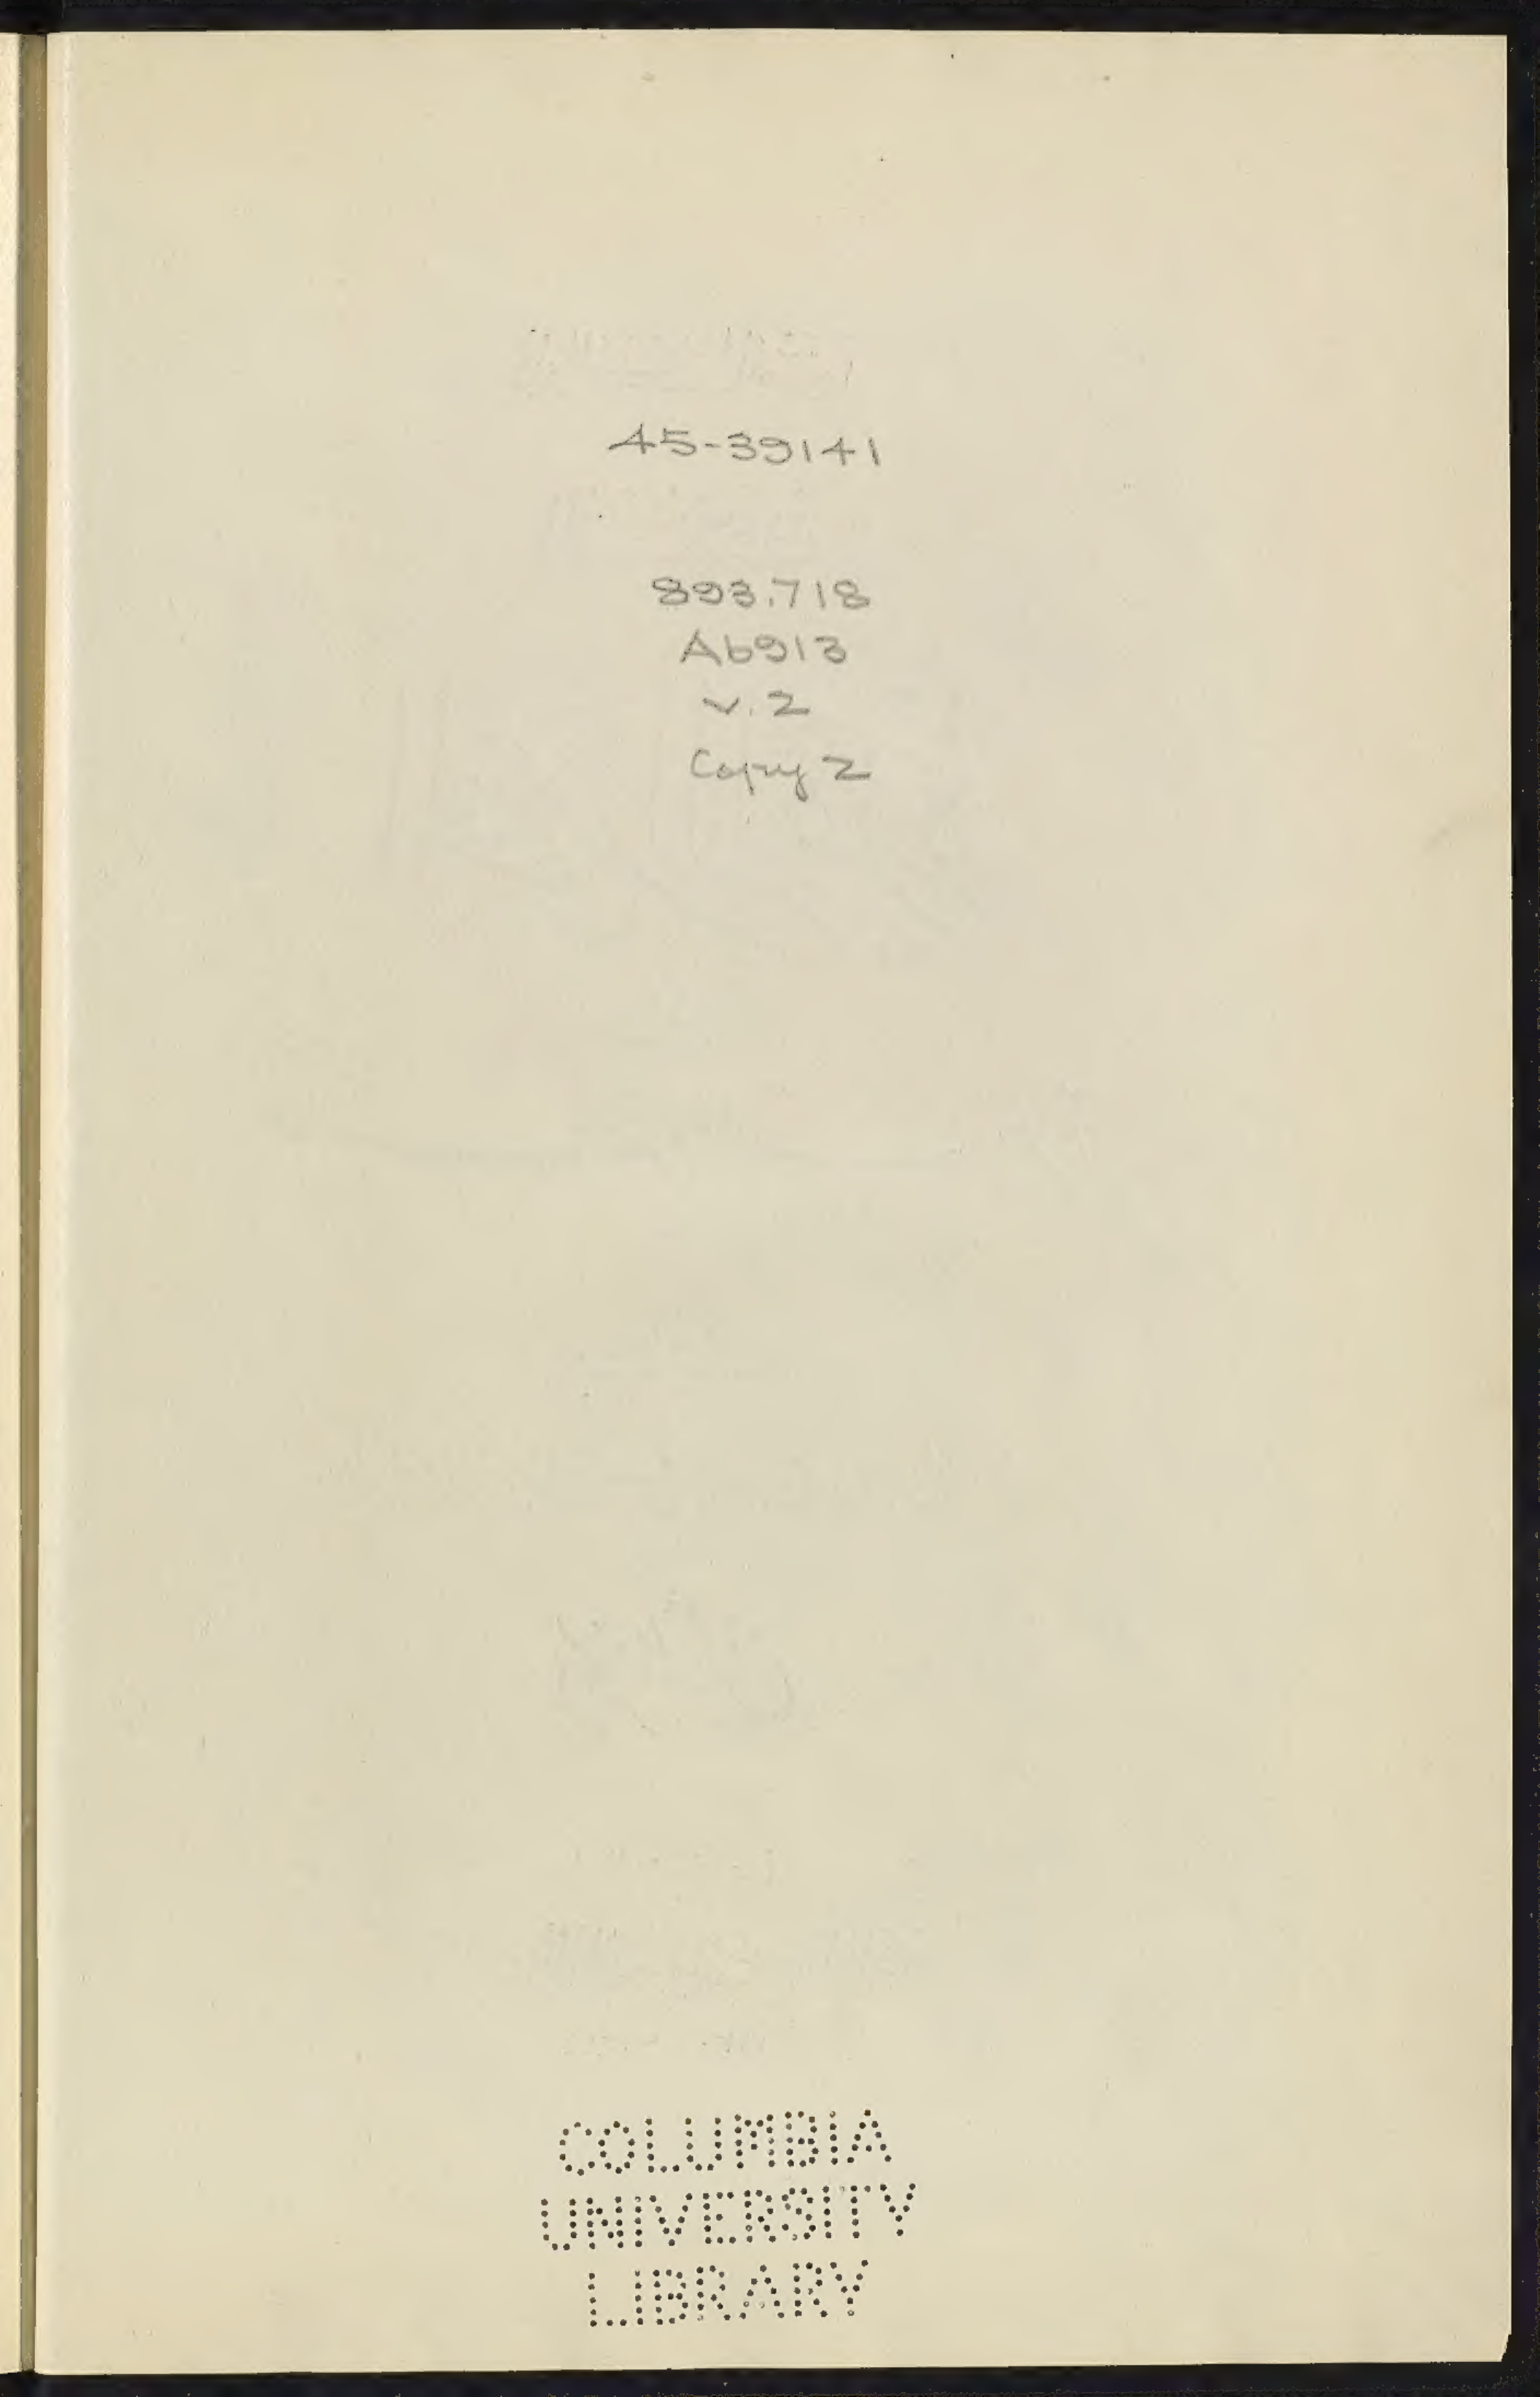 45-39141
893.718
Ab913
v.2
Copy 2
COLUMBIA
UNIVERSITY
LIBRARY